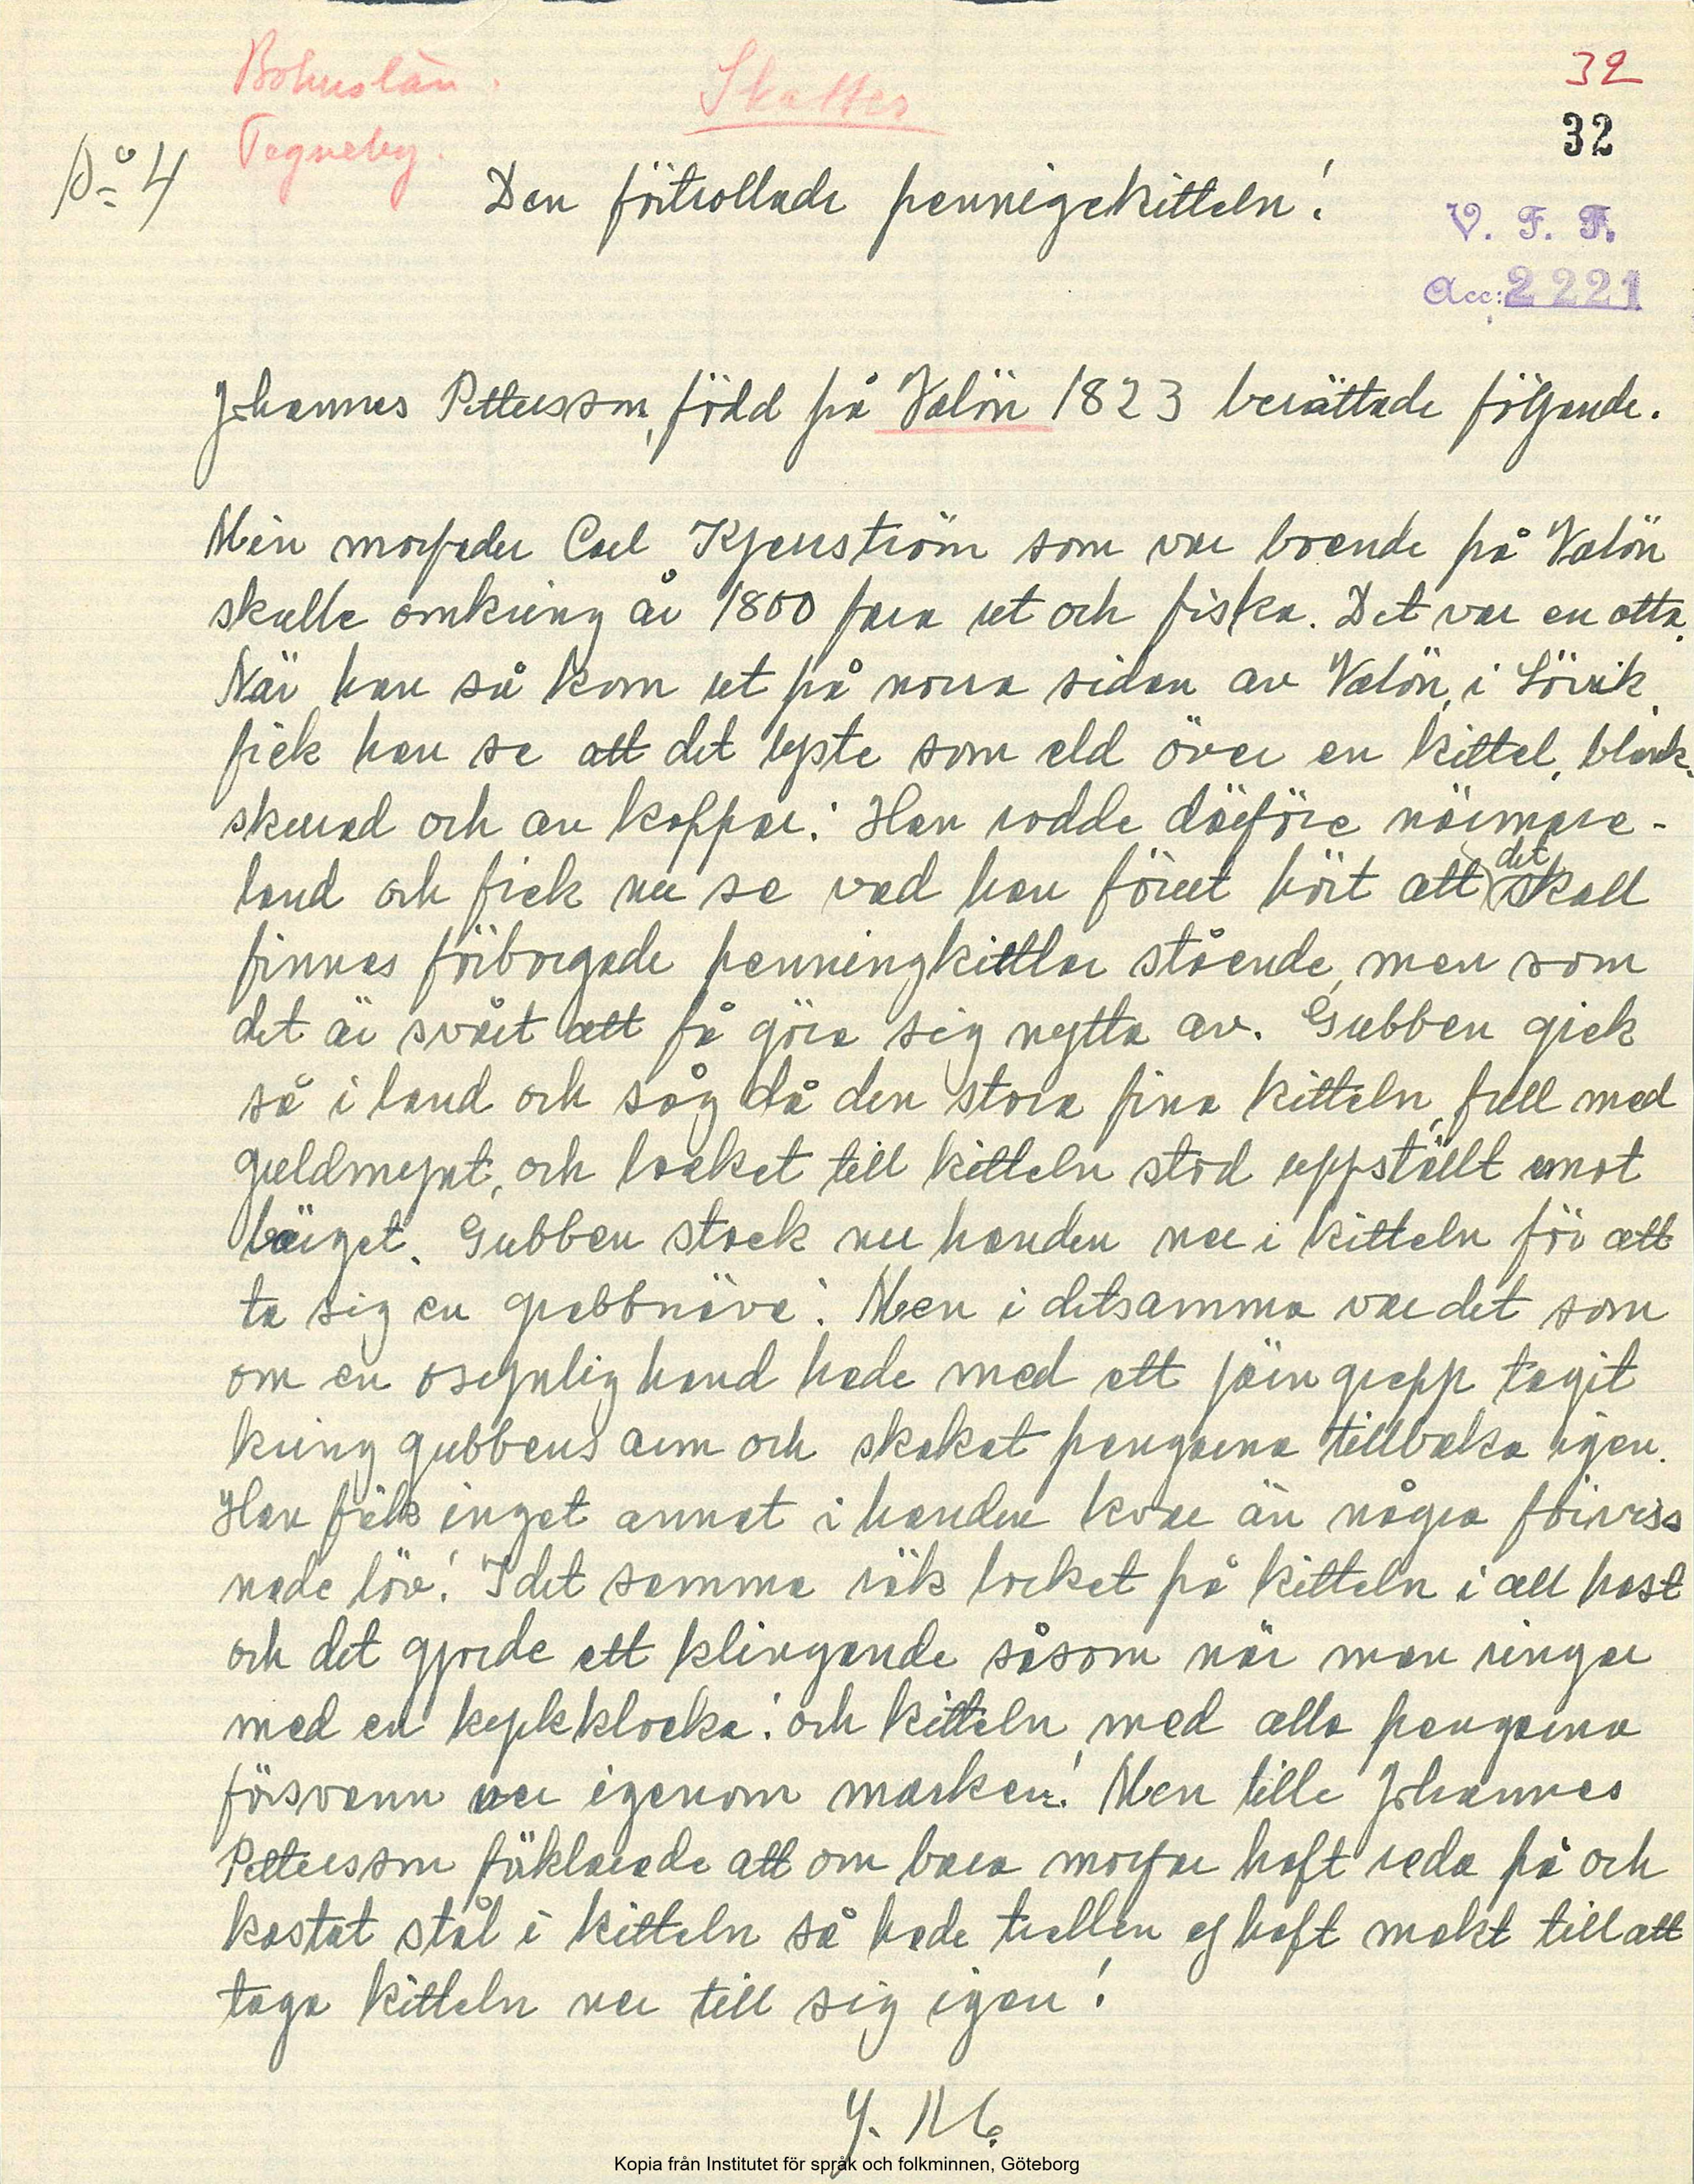 Bohuslän.
Skatter
32
Tegneby.
32
No 4
Den förtrollade pennigekitteln!
V. F. F.
Acc: 2221
Johannes Pettersson, född på Valön 1823 berättade följande.
Min morfader Carl Kjerrström som var boende på Valön
skulle omkring år 1800 fara ut och fiska. Det var en otta.
När han så kom ut på norra sidan av Valön, i Lövik,
fick han se att det lyste som eld över en kittel, blank-
skurad och av koppar! Han rodde därföre närmare-
land och fick nu se vad han förut hört att det skall
finnas förborgade penningkittlar stående, men som
det är svårt att få göra sig nytta av. Gubben gick
så i land och såg då den stora fina kitteln, full med
guldmynt, och locket till kitteln stod uppställt emot
bärget. Gubben stack nu handen ner i kitteln för att
ta sig en grabbnäve! Men i detsamma var det som
om en osynlig hand hade med ett järn grepp tagit
kring gubbens arm och skakat pengarna tillbaka igen.
Han fick inget annat i handen kvar än några förviss
nade löv! I det samma rök locket på kitteln i all hast
och det gjorde ett klingande såsom när man ringar
med en kyrkklocka! och kitteln med alla pengarna
försvann ner igenom marken! Men tille Johannes
Pettersson förklarade att om bara morfar haft reda på och
kastat stål i kitteln så hade trollen ej haft makt till att
taga kitteln ner till sig igen!
Kopia från Institutet för språk och folkminnen, Göteborg